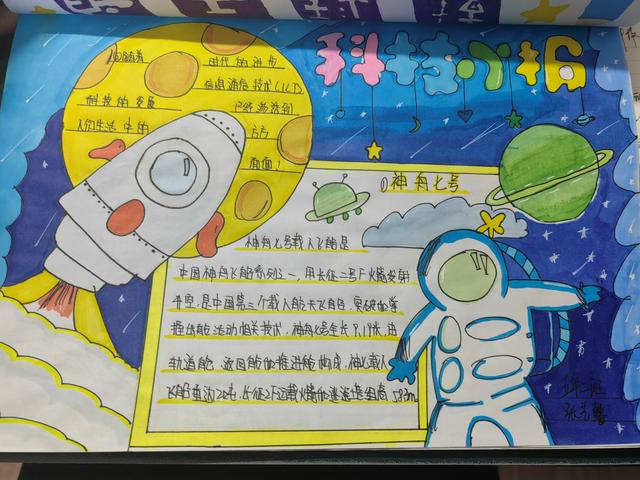 科技小报
伴随着
时代的进步
信息通信技术
科技的发展
已经渗透到
人们生活中的
方方
面面
①神舟七号
神舟七号载人飞船是
中国神舟飞船系列之一,用长征二号F火箭发射
升空,是中国第三个载人航天飞船,突破和掌
握出舱活动相关技术,神舟七号全长9.19米,由
轨道舱、返回舱和推进舱构成,神七载人
飞船重达12吨,长征2F运载火箭和逃逸塔组合高58.3m